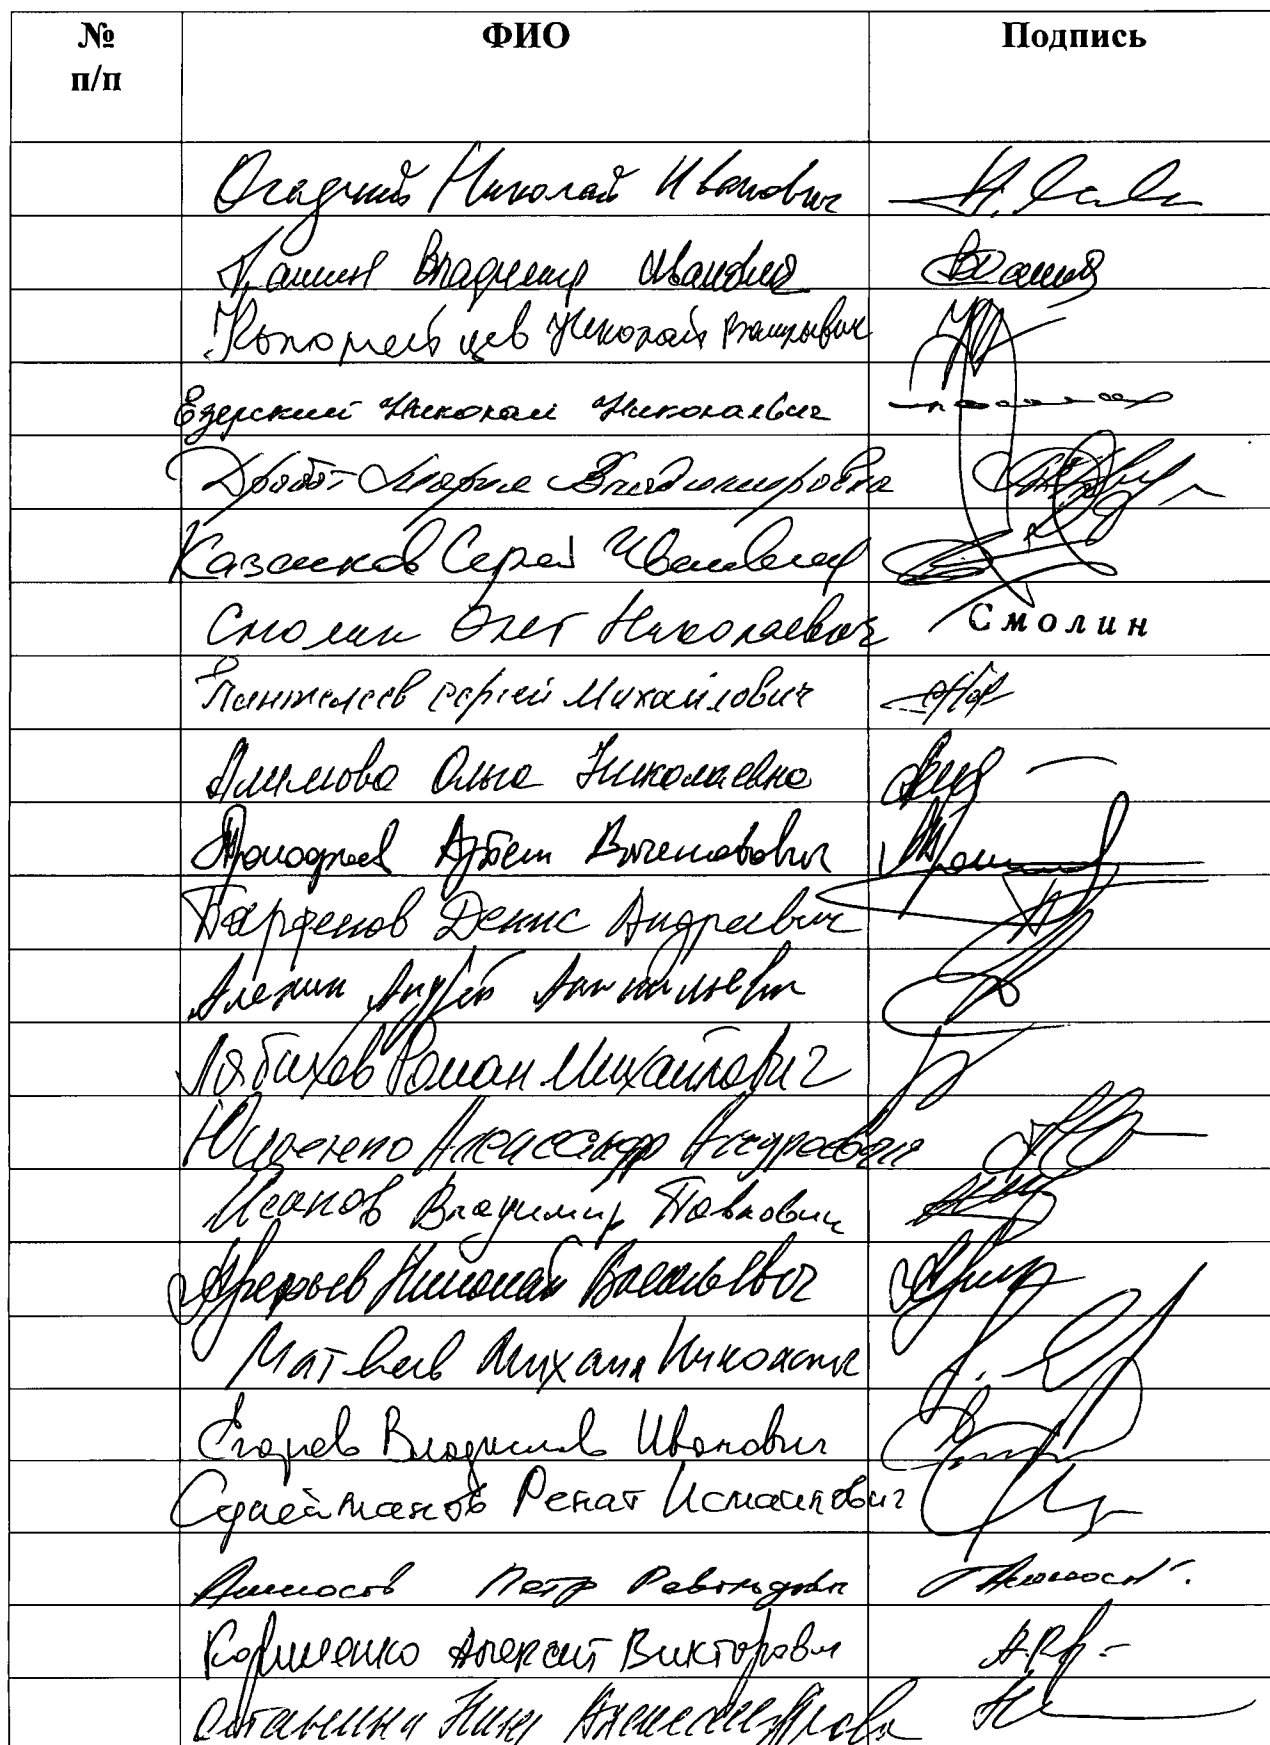 № п/п ФИО Подпись
Осадчий Николай Иванович
Кашин Владимир Иванович
Коломейцев Николай Васильевич
Езерский Николай Николаевич
Дробот Мария Владимировна
Казанков Сергей Иванович
Смолин Олег Николаевич Смолин
Пантелеев Сергей Михайлович
Алимова Ольга Николаевна
Прокофьев Артём Вячеславович
Парфенов Денис Андреевич
Алехин Андрей Анатольевич
Лябихов Роман Михайлович
Ющенко Александр Андреевич
Исаков Владимир Павлович
Арефьев Николай Васильевич
Матвеев Михаил Николаевич
Егоров Владислав Иванович
Сулейманов Ренат Исмаилович
Аммосов Петр Револьдович
Корниенко Алексей Викторович
Останина Нина Александровна